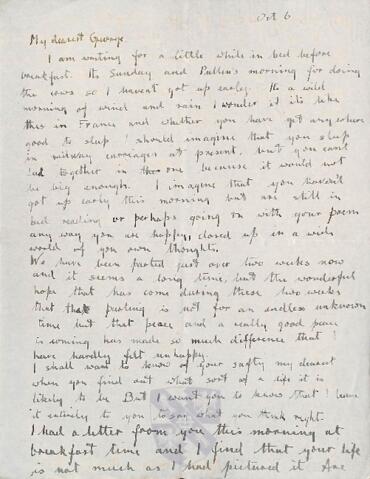 Oct 6
My dearest George
I am writing for a little while in bed before
breakfast. Its Sunday and Pullen's morning for doing
the cows so I havent got up early. Its a wild
morning of wind and rain I wonder if its like
this in France and whether you have got any where
good to sleep I should imagine that you sleep
in railway carriages at present, but you cant
all together in one because it would not
be big enough. I imagine that you havent
got up early this morning but are still in
bed reading or perhaps going on with your poem
any way you are happy, closed up in a wide
world of you own thoughts.
We have been parted just over two weeks now
and it seems a long time, but the wonderful
hope that has come during these two weeks
that parting is not for an endless unknown
time but that peace and a really good peace
is coming has made so much difference that I
have hardly felt unhappy.
I shall want to know of your safty my dearest
when you find out what sort of a life it is
likely to be But I want you to know that I leave
it entirely to you to say what you think right
I had a letter from you this morning at
breakfast time and find that your life
is not much as I had pictured it Are